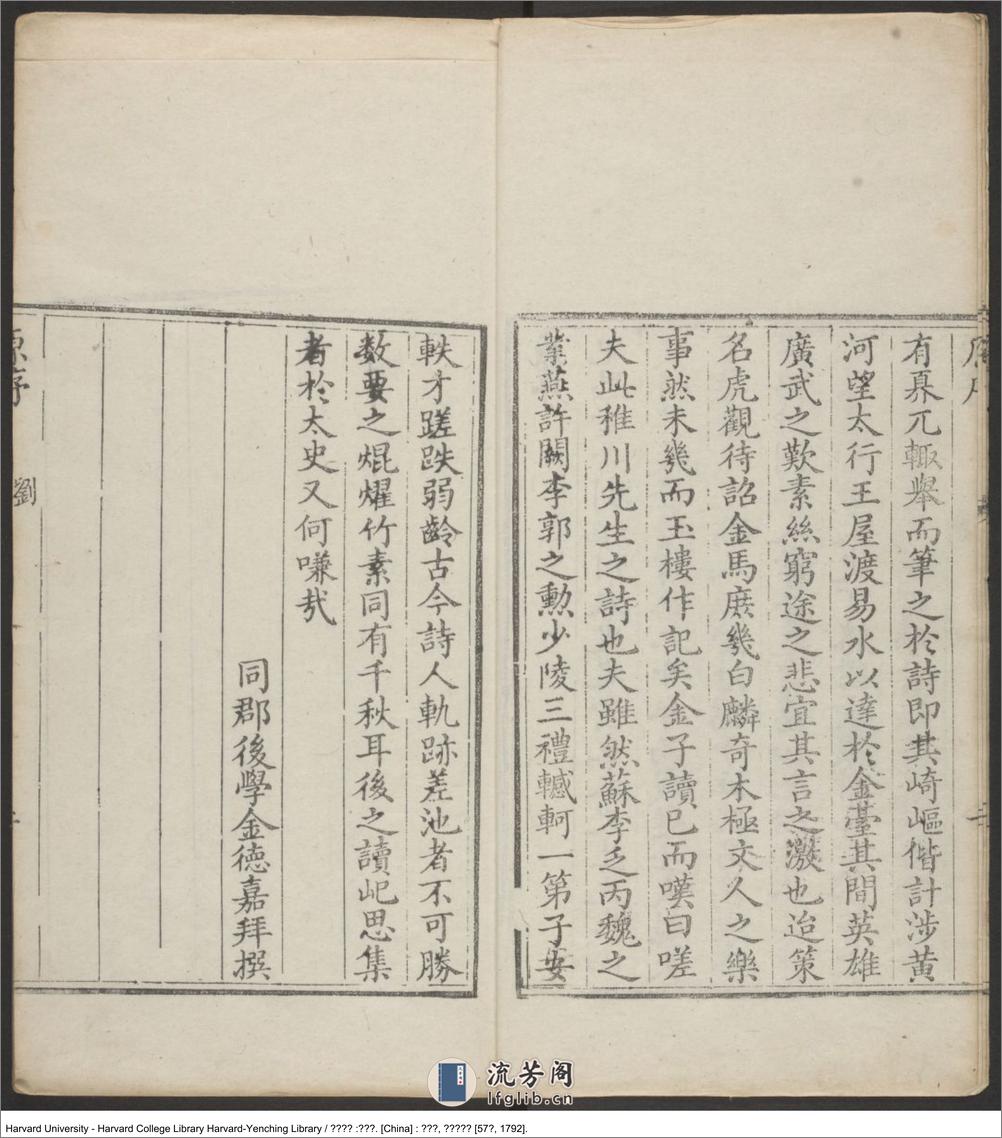 有奡兀輙舉而筆之於詩即其崎嶇偕計涉黄
河望太行王屋渡易水以達於金䑓其間英雄
廣武之歎素絲窮途之悲宜其言之激也迨策
名虎觀待詔金馬庶幾白麟奇木極文人之樂
事然未幾而玉樓作記矣金子讀已而嘆曰嗟
夫此稚川先生之詩也夫雖然蘇李乏丙魏之
業燕許闕李郭之勲少陵三禮轗軻一第子安
軼才蹉跌弱齡古今詩人軌跡差池者不可勝
数要之焜燿竹素同有千秋耳後之讀屺思集
者於太史又何嗛㢤
同郡後學金徳嘉拜撰
原序
劉
流芳阁
lfglib.cn
Harvard University - Harvard College Library Harvard-Yenching Library / ???? :???. [China] : ???, ????? [57?, 1792].